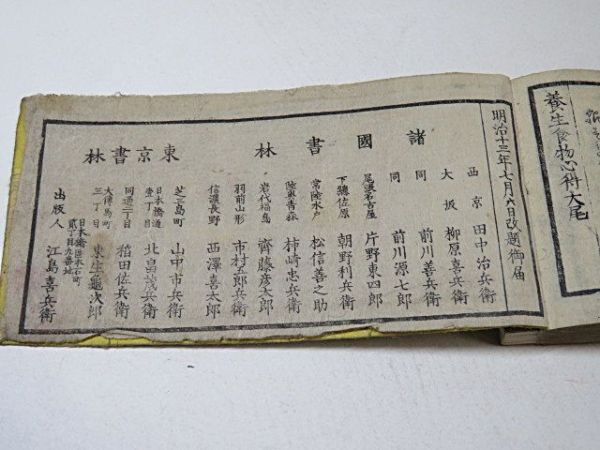 養生食物心得大尾
明治十三年七月六日改題御届
諸國書林
西京 田中治兵衛
大坂 柳原喜兵衛
同 前川善兵衛
同 前川源七郎
尾張名古屋 片野東四郎
下總佐原 朝野利兵衛
常陸水戸 松信善之助
陸奥青森 柿崎忠兵衛
岩代福島 齊藤彦太郎
羽前山形 市村五郎兵衛
信濃長野 西澤喜太郎
東京書林
芝三島町 山中市兵衛
日本橋通壹丁目 北畠茂兵衛
同通二丁目 稲田佐兵衛
大傳馬町三丁目 東生龜次郎
日本橋區本石町貳丁目九番地
出版人 江島喜兵衛